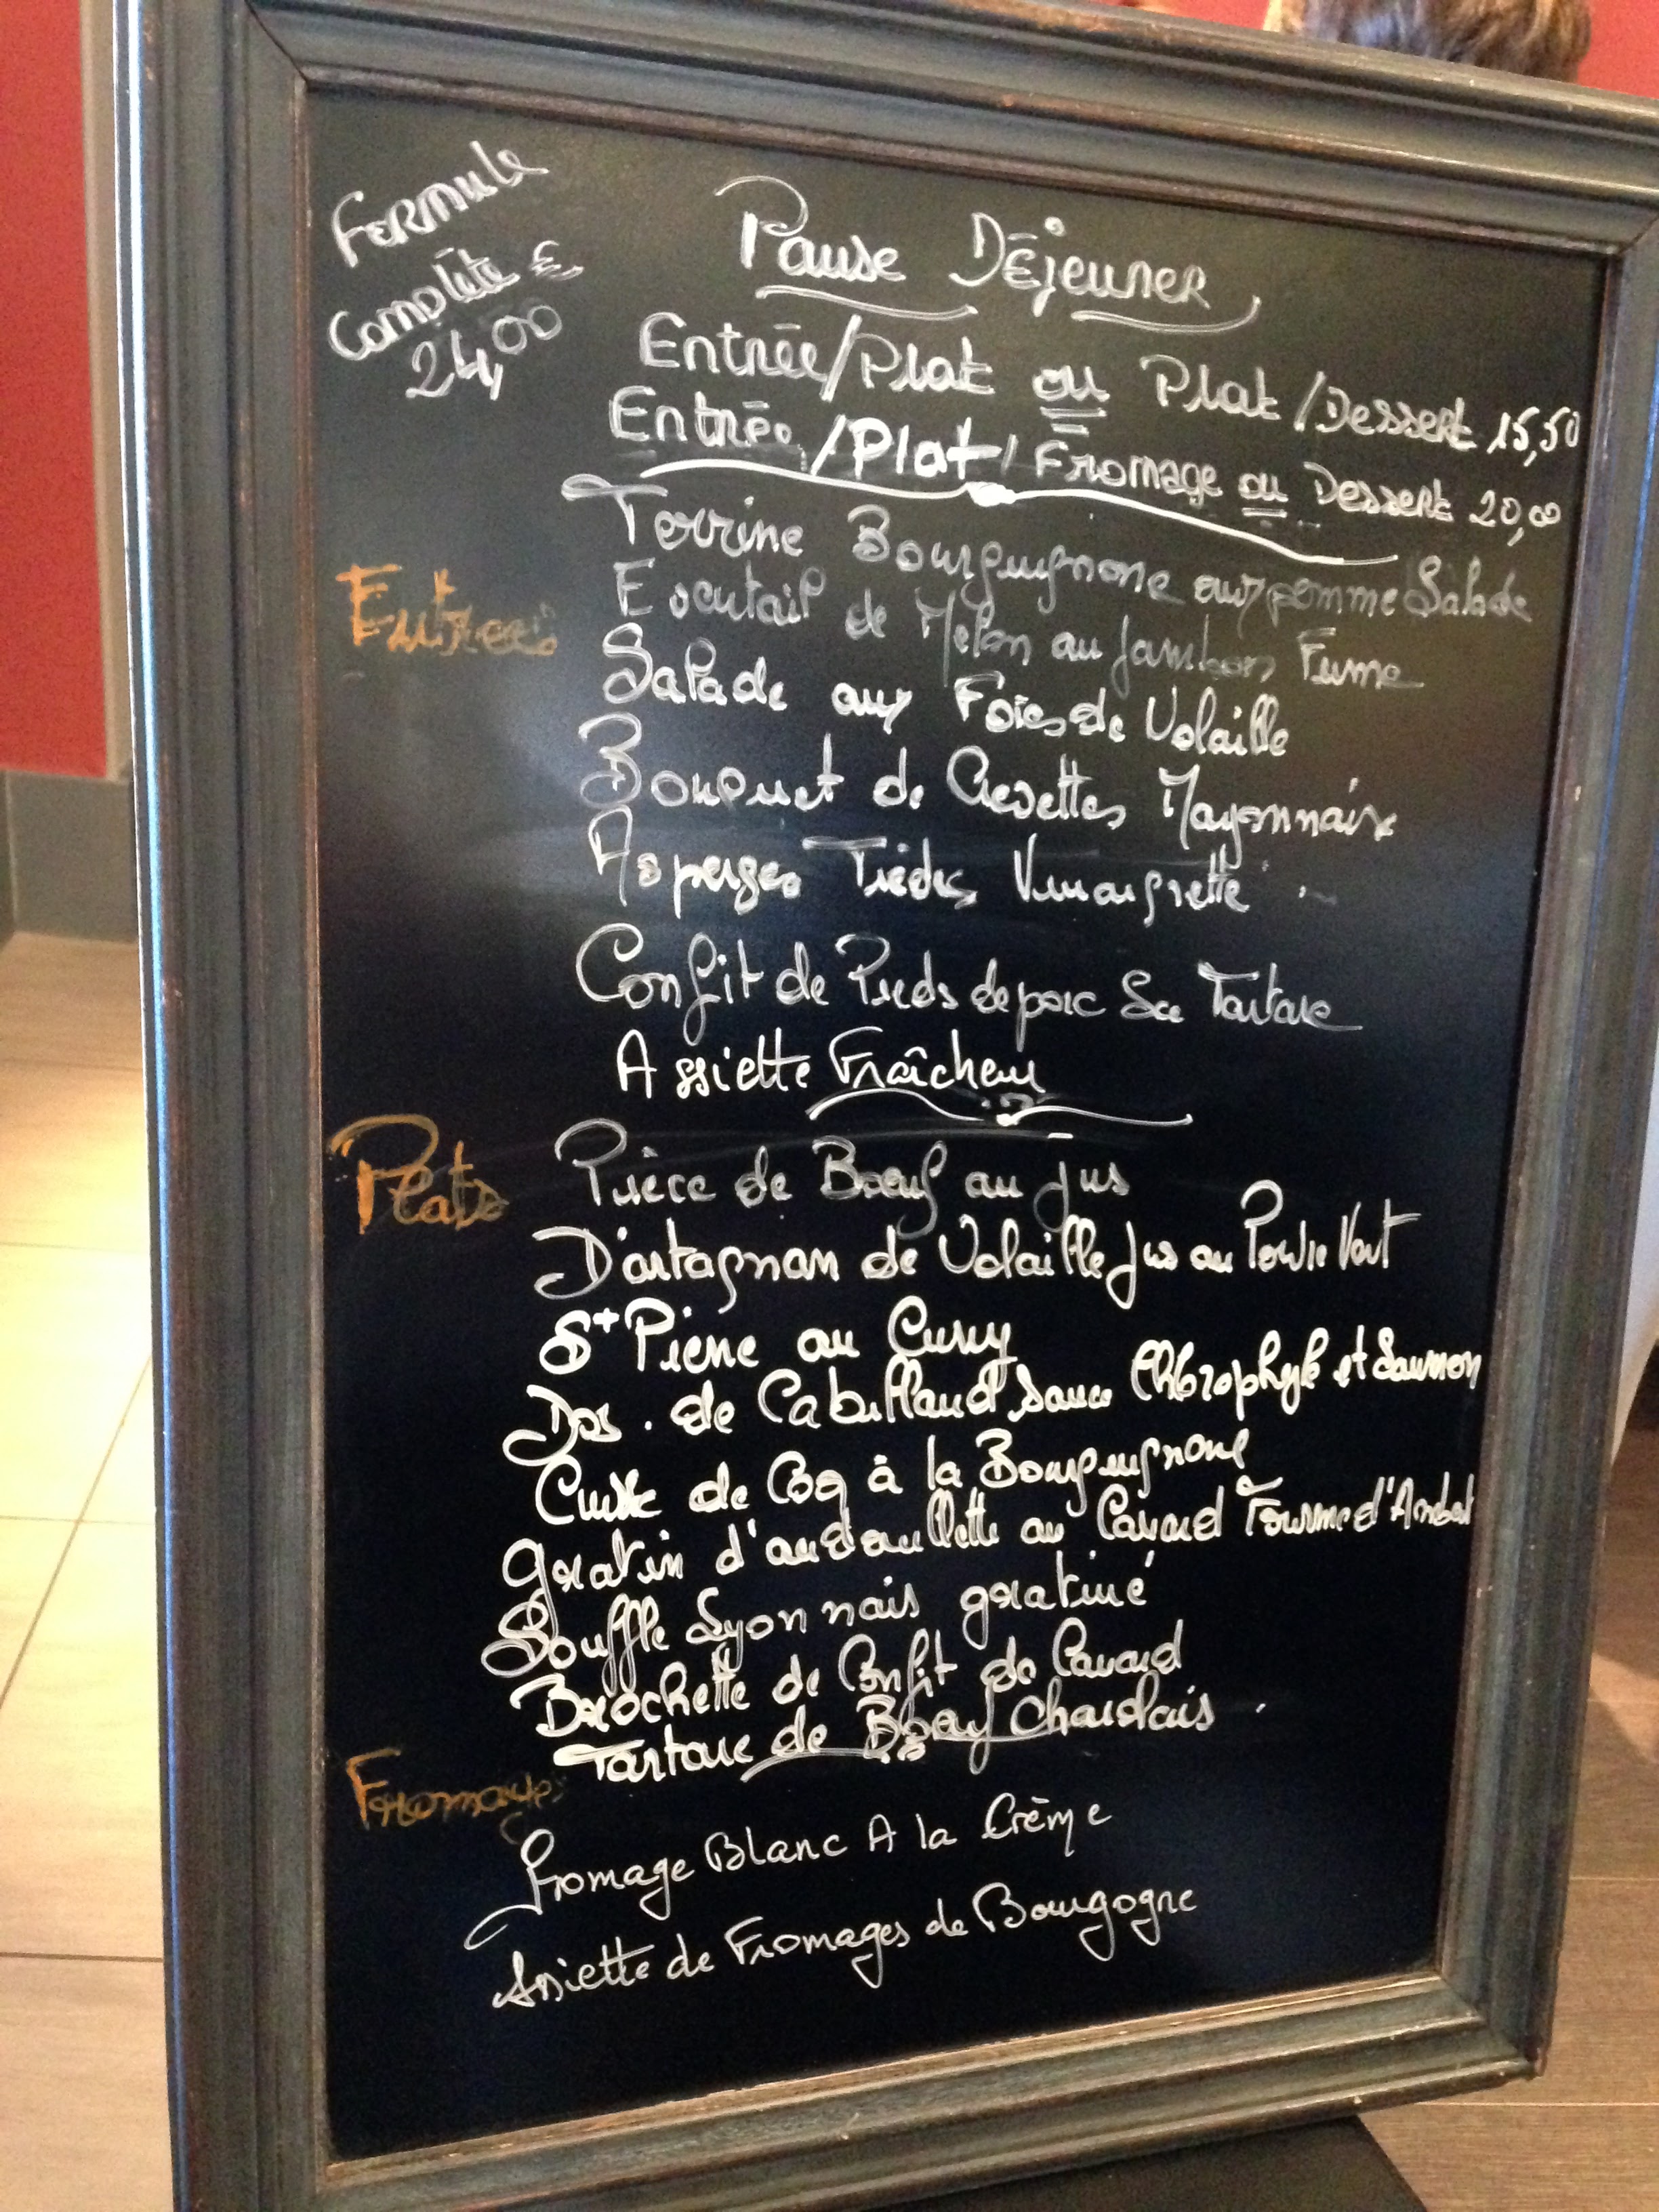 Formule
Complète €
24,00
Pause Déjeuner
Entrée/Plat ou Plat/Dessert 15,50
Entrée/Plat/Fromage ou Dessert 20,00
Entrees
Terrine Bourguignone aux pomme Salade
Evantail de Melon au Jambon Fume
Salade aux Foies de Volaille
Bouquet de Crevettes Mayonnaise
Asperges Tièdes Vinaigrette
Confit de Pieds de porc Sce Tartare
Assiette Fraîcheur
Plats
Pièce de Bœuf au jus
D'artagnan de Volaille Jus au Poivre Vert
St Pierre au Curry
Dos de Cabillaud sauce Chlorophyle et Saumon
Cuisse de Coq à la Bourguignone
gratin d'andouillette au Canard Fourme d'Ambert
Souffle Lyonnais gratiné
Brochette de Confit de Canard
Tartare de Bœuf Charolais
Fromages
Fromage Blanc A la Crème
Assiette de Fromages de Bourgogne